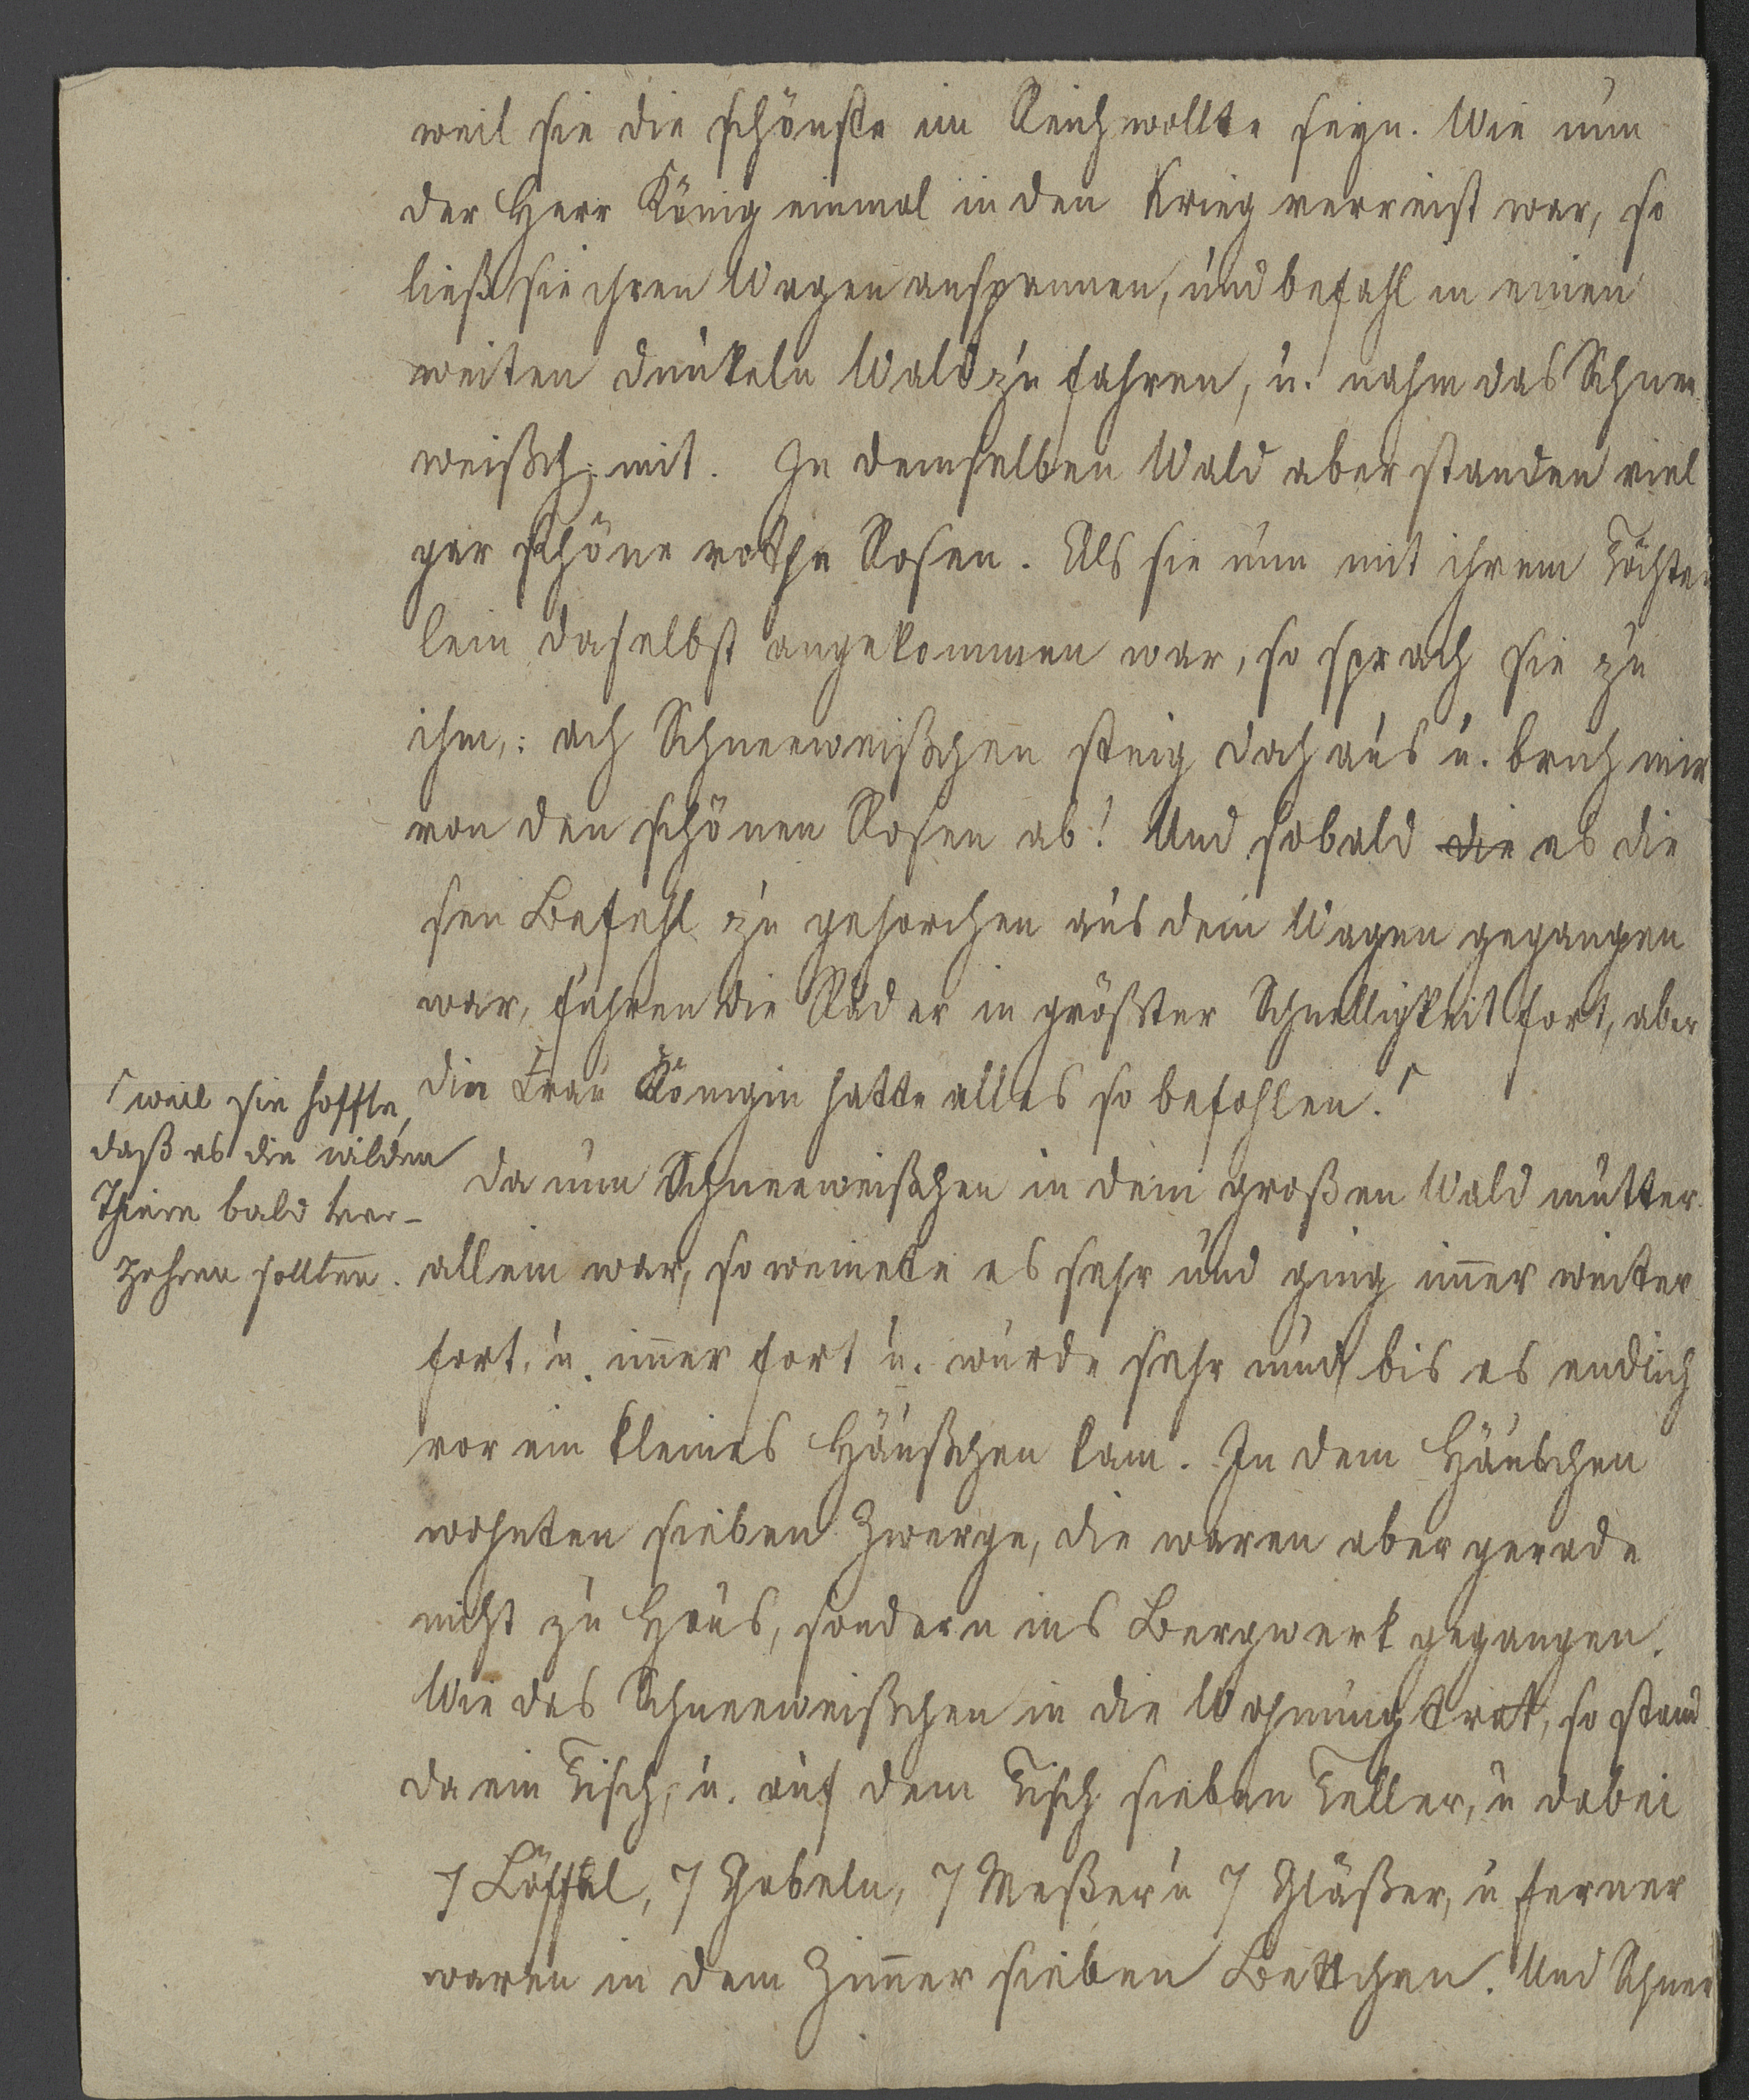 weil sie die schönste im Reich wollte seyn. Wie nun
der Herr König einmal in den Krieg verreist war, so
ließ sie ihren Wagen anspannen, und befahl in einen
weiten dunkeln Wald zu fahren, u. nahm das Schnee
weißch. mit. In demselben Wald aber standen viel
gar schöne rothe Rosen. Als sie nun mit ihrem Töchter
lein daselbst angekommen war, so sprach sie zu
ihm,: ach Schneeweißchen steig doch aus u. brich mir
von den schönen Rosen ab! Und sobald die es die
sen Befehl zu gehorchen aus dem Wagen gegangen
war, fuhren die Räder in größter Schnelligkeit fort, aber
die Frau Königin hatte alles so befohlen.⌈
⌈weil sie hoffte,
daß es die wilden
Thiere bald ver-
zehren sollten.
Da nun Schneeweißchen in dem großen Wald mutter
allein war, so weinete es sehr und ging im̅er weiter
fort, u. im̅er fort u. wurde sehr müd bis es endlich
vor ein kleines Häußchen kam. In dem Häuschen
wohnten sieben Zwerge, die waren aber gerade
nicht zu Haus, sondern ins Bergwerk gegangen.
Wie das Schneeweißchen in die Wohnung trat, so stand
da ein Tisch, u. auf dem Tisch sieben Teller, u dabei
7 Löffel, 7 Gabeln, 7 Meßer u 7 Gläßer, u ferner
waren in dem Zim̅er sieben Bettchen. Und Schnee